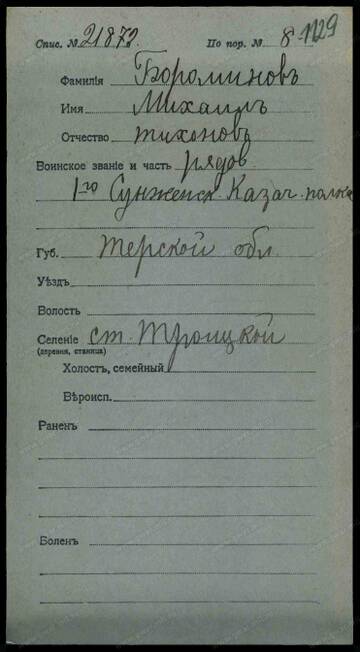 Спис. № 21872. По пор. № 8-1129
Фамилія Бороминовъ
Имя Михаилъ
Отчество тихоновъ
Воинское званіе и часть рядов.
1го Сунженск. Казач. полка
Губ. Терской обл.
Уѣздъ
Волость
Селеніе ст. Троицкой
(деревня, станица)
Холостъ, семейный
Вѣроисп.
Раненъ
Боленъ